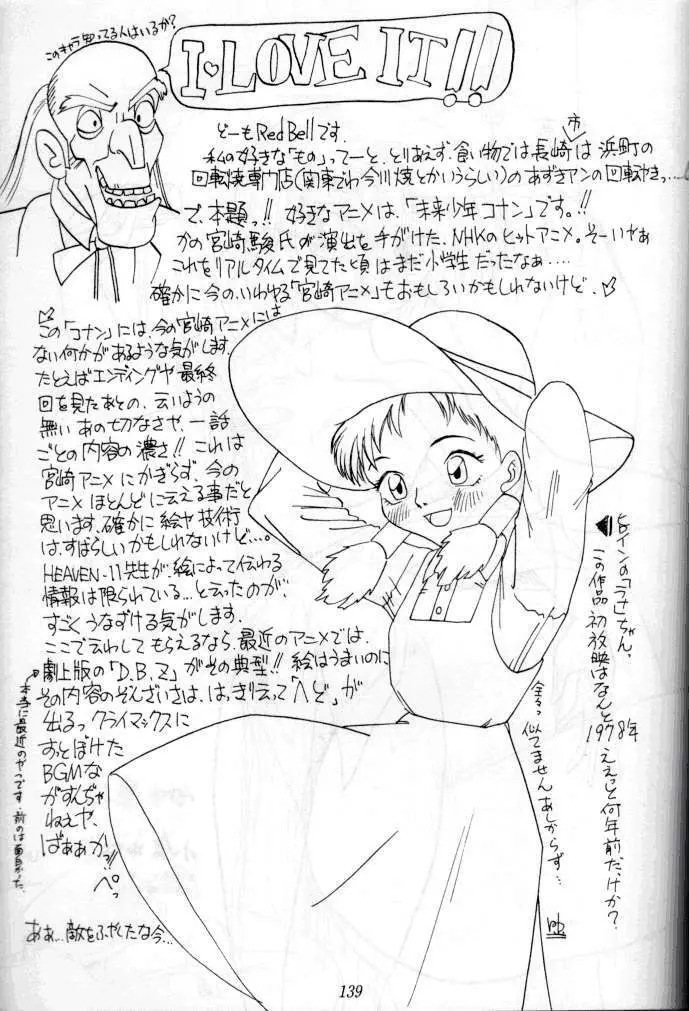 このキャラ知ってる人はいるか?
I♥LOVE IT!!
どーもRed Bellです.
私の好きな「もの」ってーと、とりあえず、食い物では長崎市は浜町の
回転焼専門店(関東でわ今川焼とかいうらしい)のあずきアンの回転やきっ....
で、本題っ!! 好きなアニメは、「未来少年コナン」です.!!
かの宮崎駿氏が演出を手がけた、NHKのヒットアニメ。そーいやぁ
これをリアルタイムで見てた頃はまだ小学生だったなぁ....
確かに今の、いわゆる「宮崎アニメ」もおもしろいかもしれないけど、
この「コナン」には、今の宮崎アニメには
ない何かがあるような気がします.
たとえばエンディングや最終
回を見たあとの、云いようの
無いあの切なさや、一話
ごとの内容の濃さ!! これは
宮崎アニメにかぎらず、今の
アニメほとんどに云える事だと
思います、確かに絵や技術
は、すばらしいかもしれないけど...。
HEAVEN-11先生が、絵によって伝わる
情報は限られている...と云ったのが、
すごくうなずける気がします.
ここで云わしてもらえるなら、最近のアニメでは、
劇上版の「D.B.Z」がその典型!! 絵はうまいのに
その内容のぞんざいさは、はっきり云って「へど」が
出るっクライマックスに
すっとぼけた
BGMな
がすんぢゃ
ねぇや、
ばぁぁかっ!!
ペっ
本当に最近のやつです.前のは面白かった.
ああ...敵をふやしたな今...
ヒロインの「ラナ」ちゃん、
この作品初放映はなんと1978年
ええっと何年前だっけか?
余るっ似てませんあしからず...
139